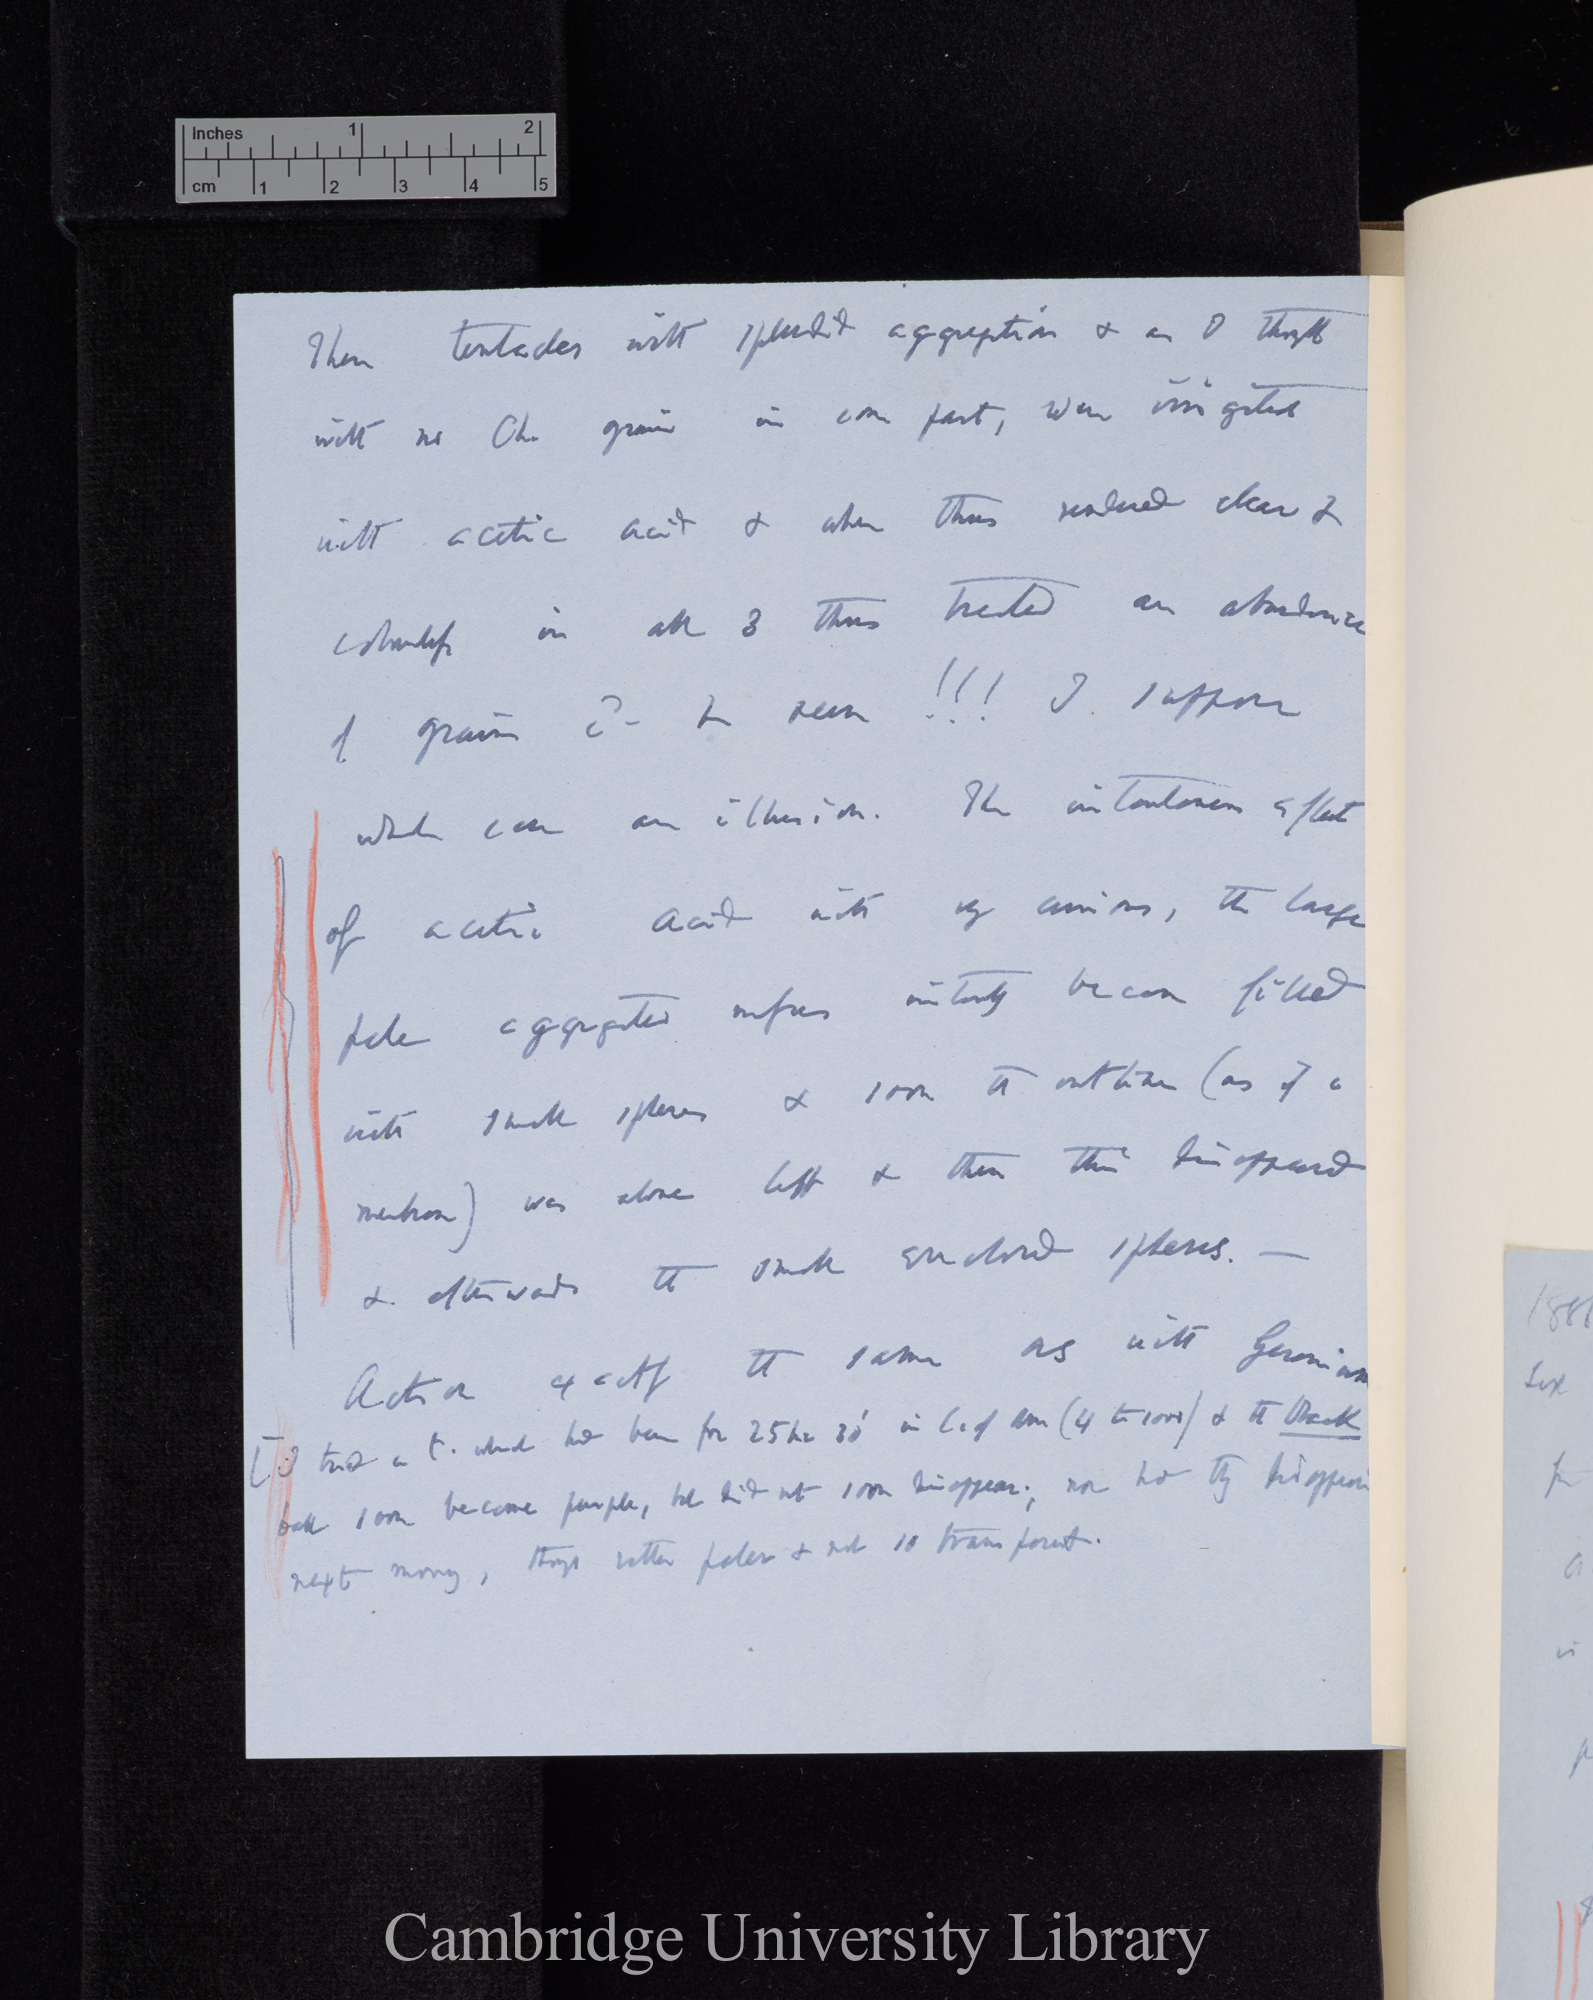 Inches 1 2
cm 1 2 3 4 5
Then tentacles with splendid aggregation & as I thought
with no Ch. grains in some part, were irrigated
with acetic acid & when thus rendered clear &
in all 3 thus treated an abundance
of grains to be seen !!! I suppose
whole case an illusion. The instantaneous effect
of acetic acid with is curious, the large
pale aggregated masses instantly became filled
with small spheres & soon the outline (as if a
membrane) was alone left & then this disappeared
& afterwards the small enclosed spheres. —
Action exactly the same as with Geranium
[I tried a t. which had been for 25 hr 30' in C. of Am (4 to 1000) & the black
balls soon became purple, but did not soon disappear; nor had they disappeared
next morng, though rather paler & not so transparent.
188
Six
Cambridge University Library